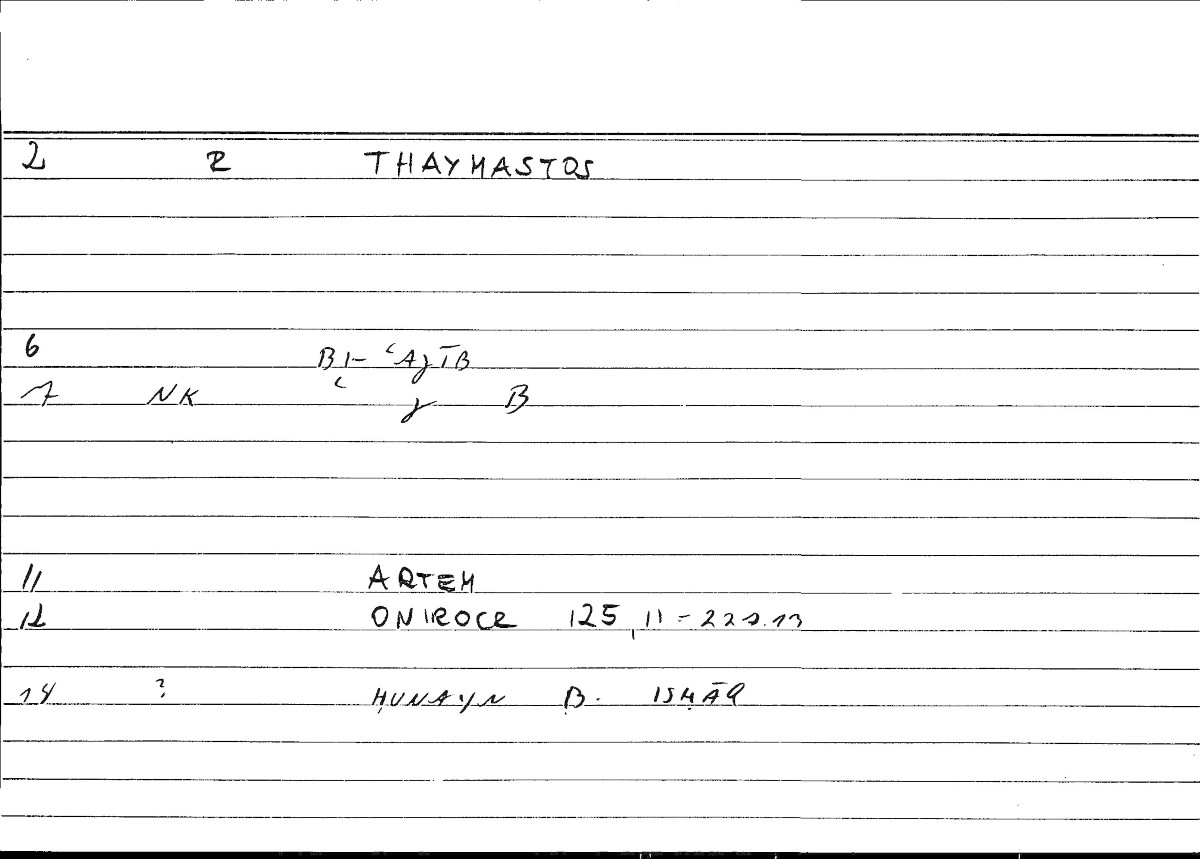 2 R THAYMASTOS
6 BI- ʿAǧĪB
7 NK ʿ ǧ B
11 ARTEM
12 ONIROCR 125,11-
14 ? ḤUNAYN B. ISḤĀQ